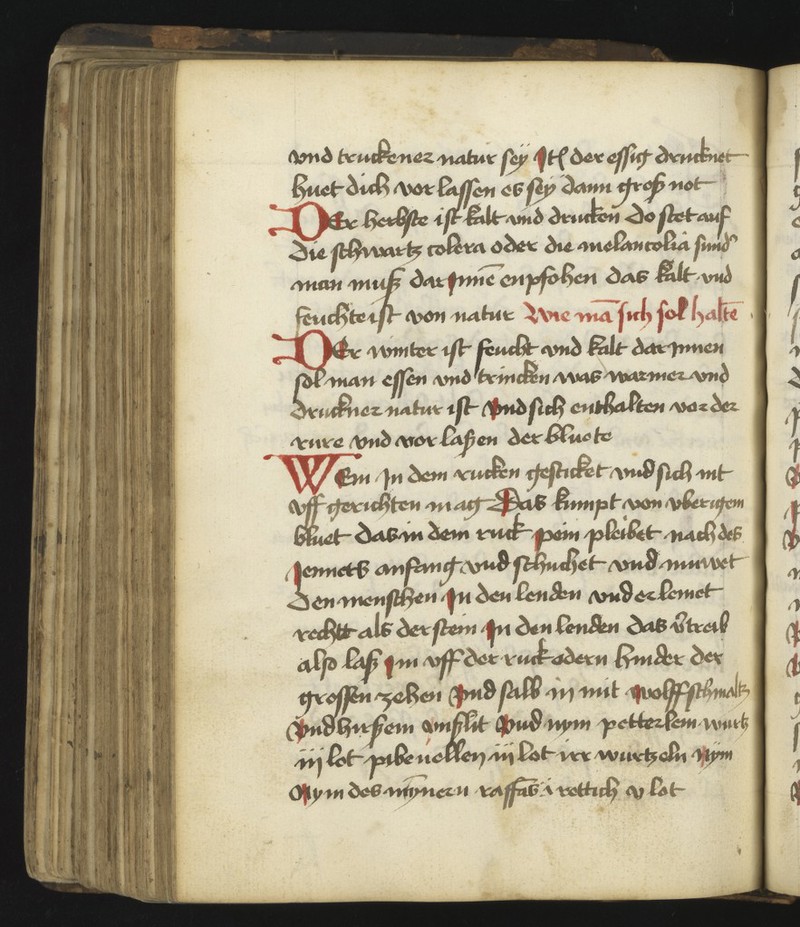 vnd truckener natur sey Jtē der essig drucknet
huet dich vor lassen es sey dann groß not
DEr herbste ist kalt vnd drucken Do stet auf
die schwartz colera oder die melancolia sund
man muß dar Jnnē enpfohen das kalt vnd
feuchte ist von natur Wie mā sich sol haltē
DEr winter ist feucht vnd kalt dar Jnnen
sol man essen vnd trincken was warmer vnd
druckner natur ist Vnd sich enthalten vor der
rure vnd vor laßen der bluote
WEm Jn dem rucken gesticket vnd sich nit
vff gerichten mag Das kumpt von vberigem
bluet das in dem ruck pein pleibet nach des
Jennets anfang vnd schuchet vnd muwet
Den menschen Jn den lenden vnd erlemet
rechtt als der stein Jn den lenden das v̄treib
also laß Jm vff der ruck odern hinder der
grossen zehen Vnd salb in mit wolffschmaltz
Vnd hirßem vnßlit Vnd nym petterlem wurtz
iij lot pibenellen iij lot irr wurtzeln Nym
Nym des mynern i rettich v lot